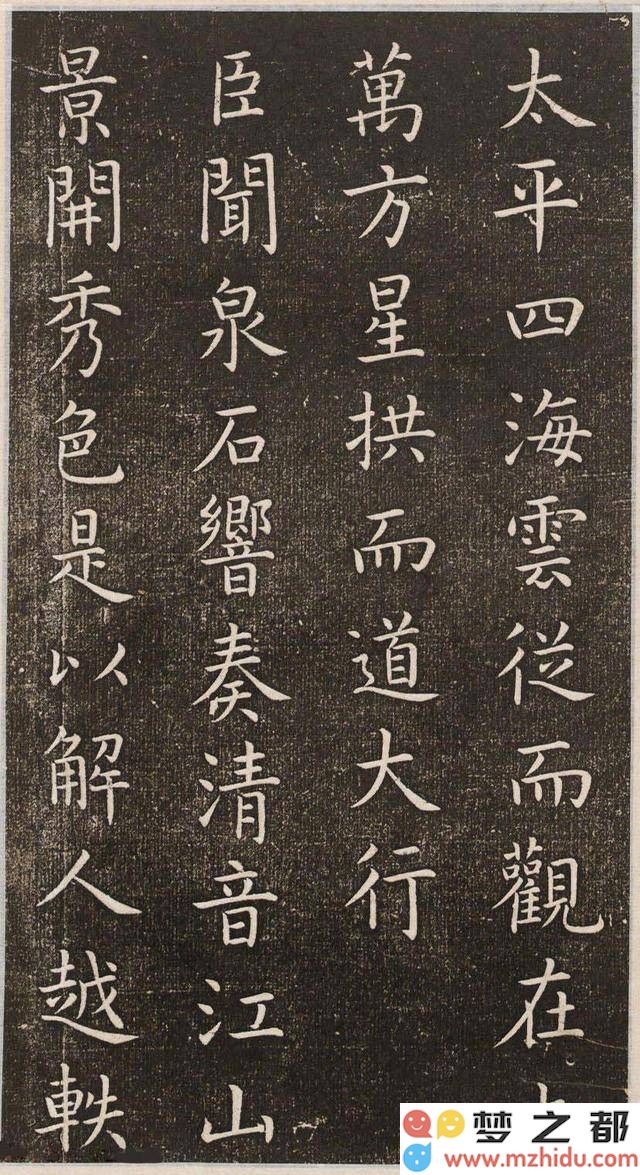 太平四海雲従而觀在
萬方星拱而道大行
臣聞泉石響奏清音江山
景開秀色是以解人越軼
梦之都
www.mzhidu.com